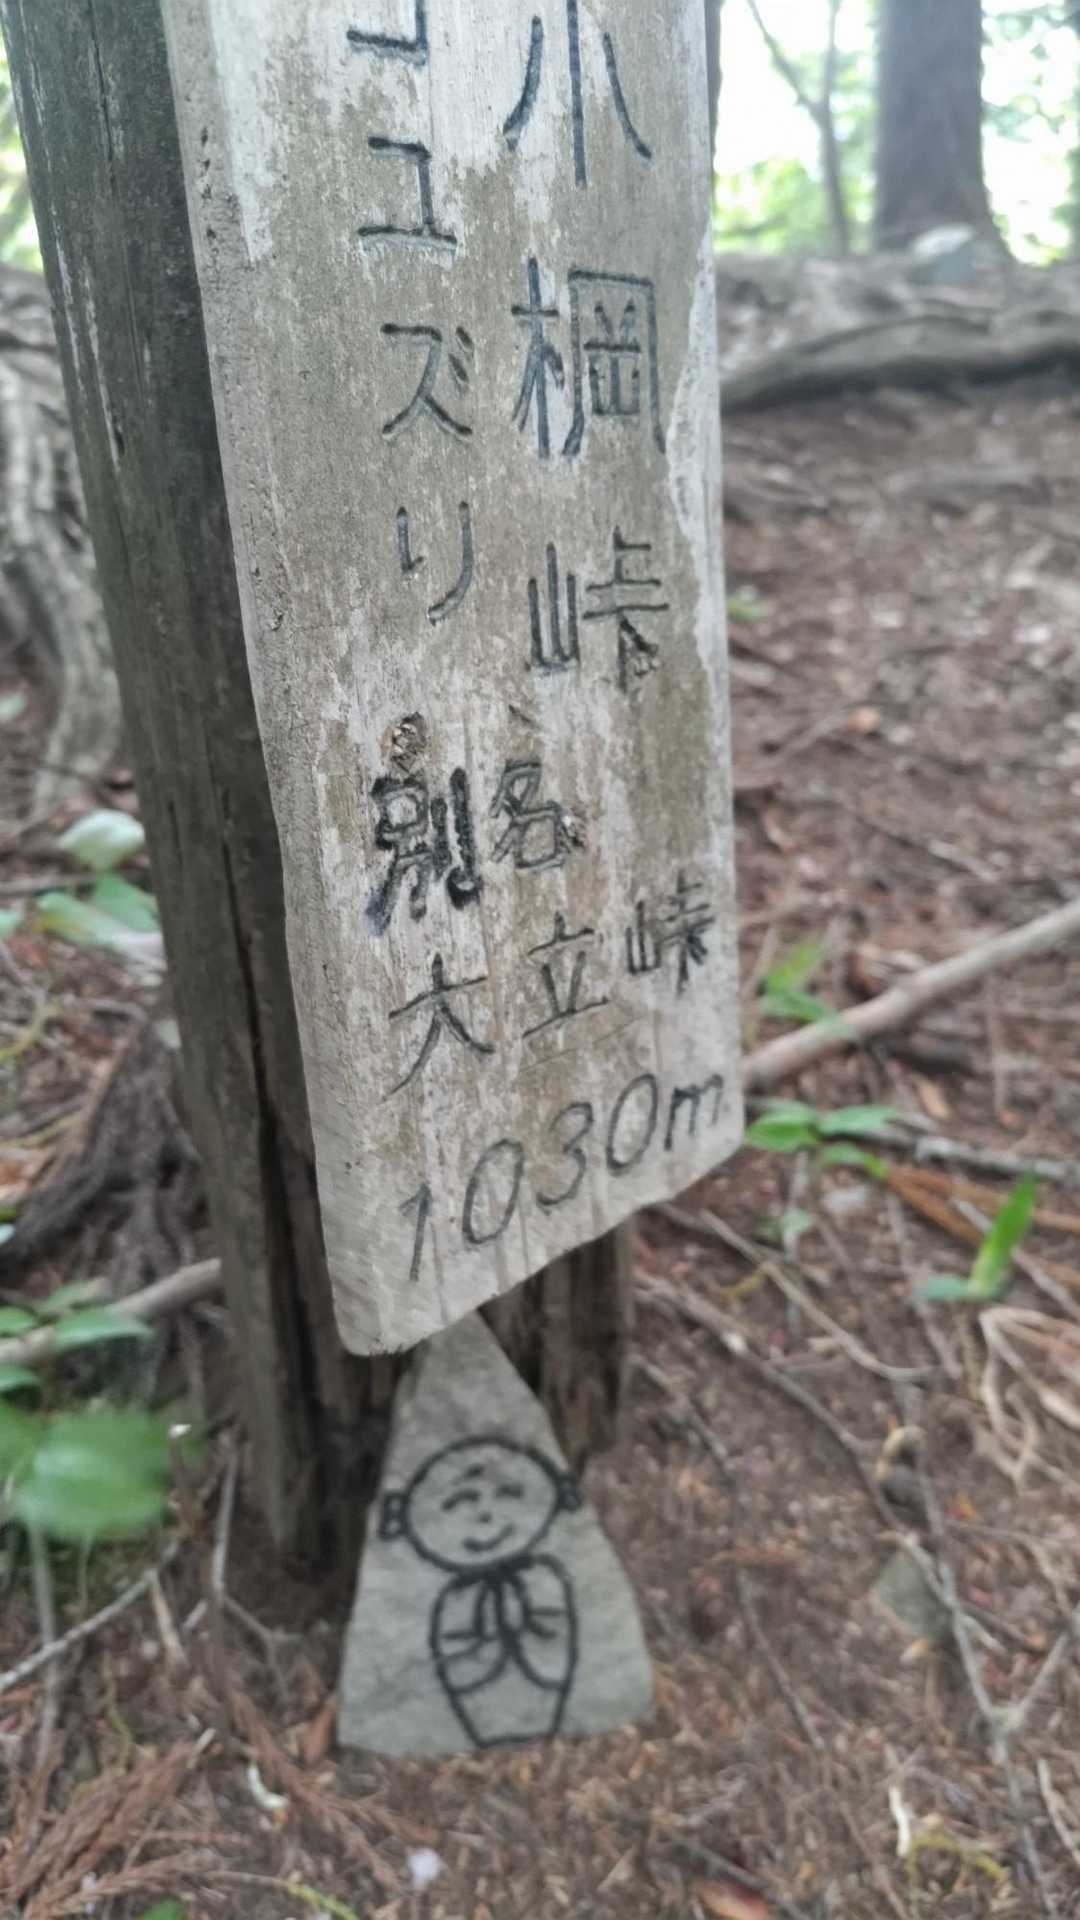 小棡峠
コユズリ
別名
大立峠
1030m